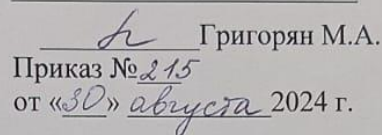 Григорян М.А.
Приказ №215
от «30» августа 2024 г.